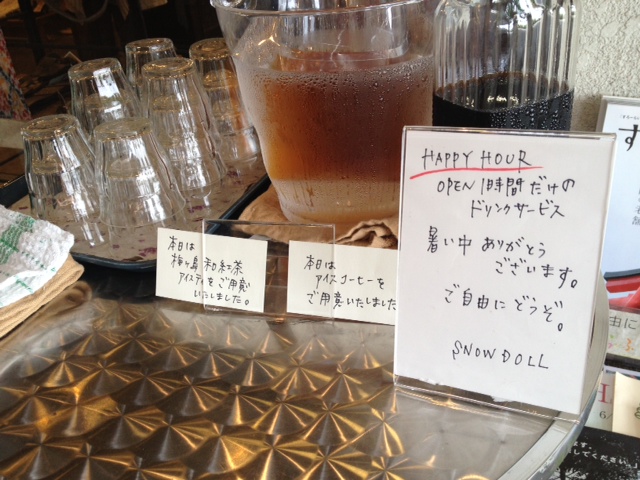 HAPPY HOUR
OPEN 1時間だけの
ドリンクサービス
暑い中 ありがとう
ございます。
ご自由に どうぞ。
SNOW DOLL
本日は
梅ヶ島 和紅茶
アイスティをご用意
いたしました。
本日は
アイスコーヒーを
ご用意いたしました
す